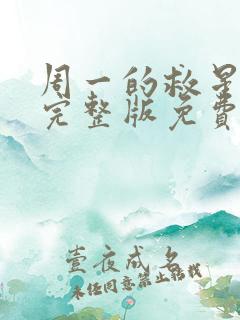 周一的救星
完整版免费
壹夜成名
未经同意禁止转载